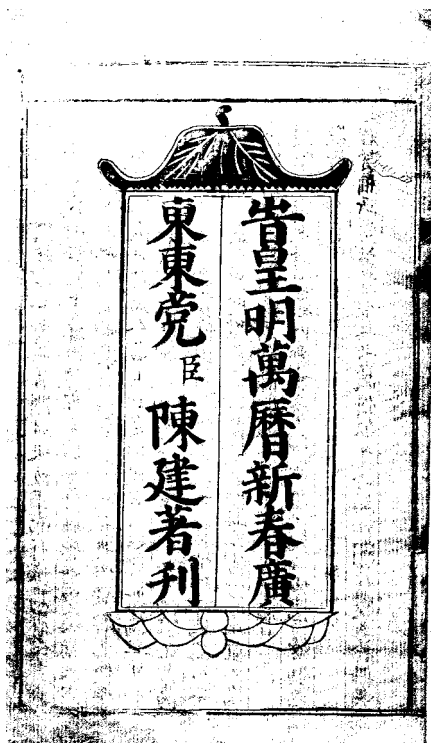 旹皇明萬曆新春廣
東東莞臣陳建著刊